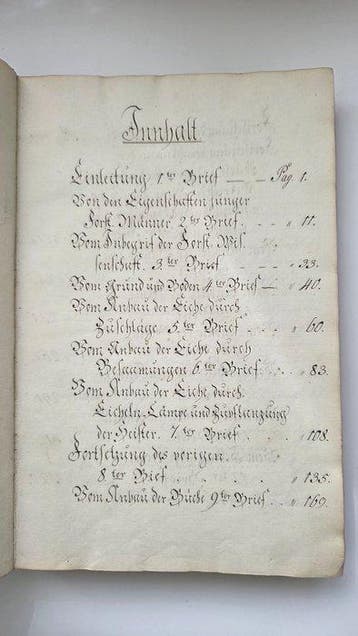 Innhalt
Einleitung 1ter Brief — – Pag. 1.
Von den Eigenschaften junger
Forst Männer 2ter Brief . . „ 11.
Vom Inbegrif der Forst Wis
senschaft. 3.ter Brief – – – „ 33.
Vom Grund und Boden 4ter Brief – „ 40.
Vom Anbau der Eiche durch
Zuschläge 5ter Brief . . . „ 60.
Vom Anbau der Eiche durch
Besaamungen 6ter Brief . . „ 83.
Vom Anbau der Eiche durch
Eicheln Kämpe und Zupflanzung
der Heister. 7ter Brief . . „ 108.
Fortsetzung des vorigen.
8ter Bief . . . . „ 135.
Vom Anbau der Buche 9ter Brief . . „ 169.